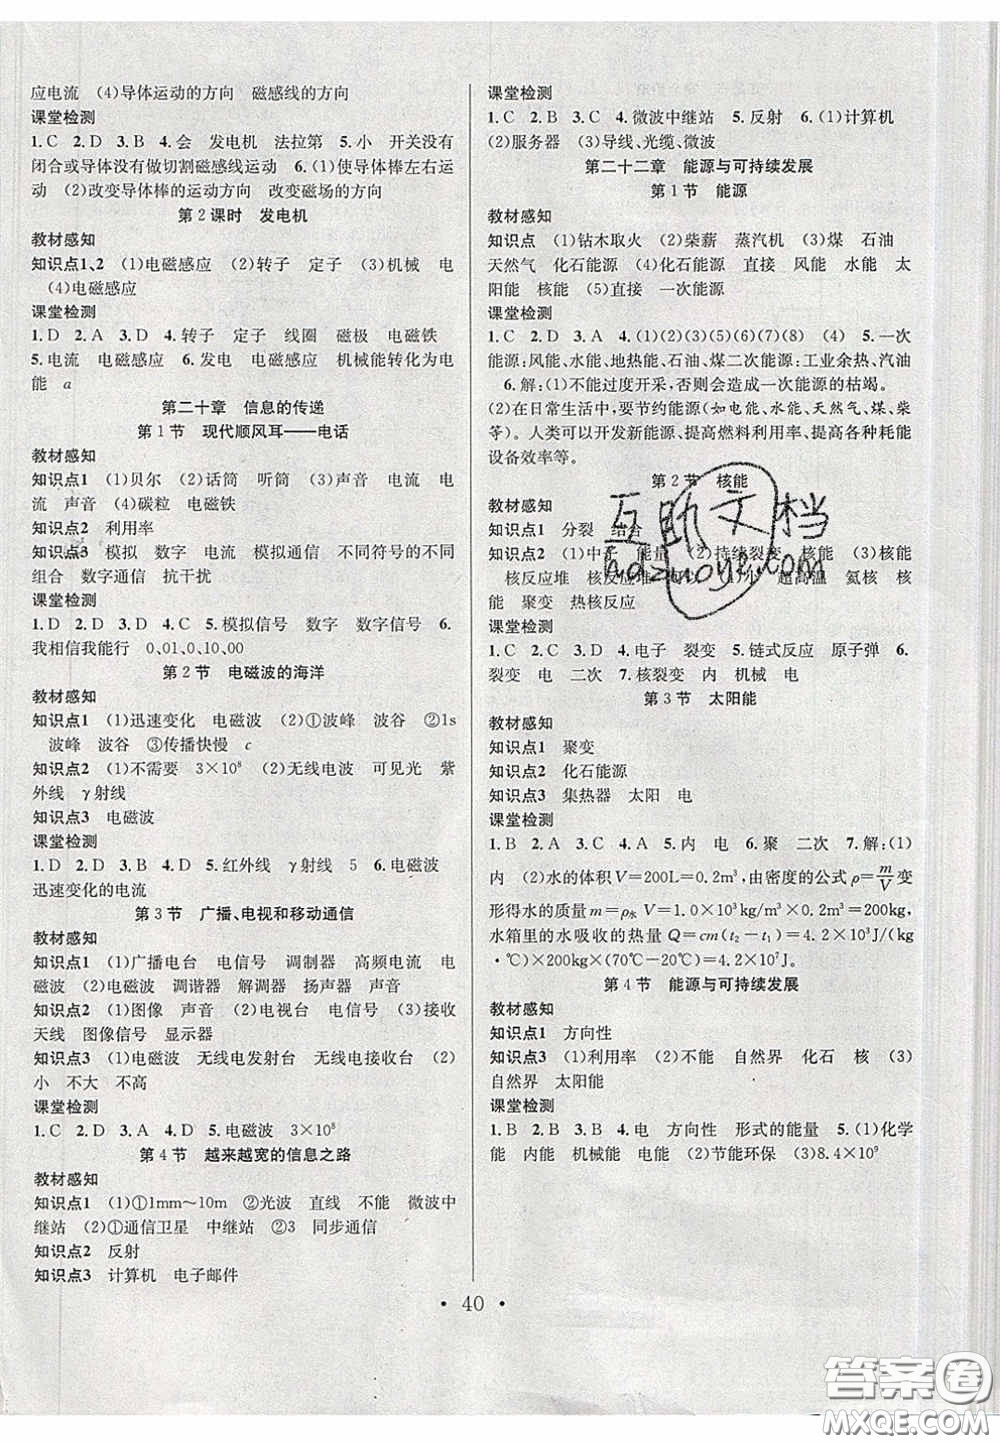 应电流　(4)导体运动的方向　磁感线的方向
课堂检测
1.C　2.D　3.B　4.会　发电机　法拉第　5.小　开关没有
闭合或导体没有做切割磁感线运动　6.(1)使导体棒左右运
动　(2)改变导体棒的运动方向　改变磁场的方向
第2课时　发电机
教材感知
知识点1、2　(1)电磁感应　(2)转子　定子　(3)机械　电
(4)电磁感应
课堂检测
1.D　2.A　3.D　4.转子　定子　线圈　磁极　电磁铁
5.电流　电磁感应　6.发电　电磁感应　机械能转化为电
能　a
第二十章　信息的传递
第1节　现代顺风耳——电话
教材感知
知识点1　(1)贝尔　(2)话筒　听筒　(3)声音　电流　电
流　声音　(4)碳粒　电磁铁
知识点2　利用率
知识点3　模拟　数字　电流　模拟通信　不同符号的不同
组合　数字通信　抗干扰
课堂检测
1.D　2.B　3.C　4.C　5.模拟信号　数字　数字信号　6.
我相信我能行　0、01、0、10、00
第2节　电磁波的海洋
教材感知
知识点1　(1)迅速变化　电磁波　(2)①波峰　波谷　②1s
波峰　波谷　③传播快慢　c
知识点2　(1)不需要　3×10⁸　(2)无线电波　可见光　紫
外线　γ射线
知识点3　电磁波
课堂检测
1.D　2.D　3.A　4.D　5.红外线　γ射线　5　6.电磁波
迅速变化的电流
第3节　广播、电视和移动通信
教材感知
知识点1　(1)广播电台　电信号　调制器　高频电流　电
磁波　(2)电磁波　调谐器　解调器　扬声器　声音
知识点2　(1)图像　声音　(2)电信号　电磁波　(3)接收
天线　图像信号　显示器
知识点3　(1)电磁波　无线电发射台　无线电接收台　(2)
小　不大　不高
课堂检测
1.C　2.D　3.A　4.D　5.电磁波　3×10⁸
第4节　越来越宽的信息之路
教材感知
知识点1　(1)①1mm～10m　②光波　直线　不能　微波中
继站　(2)①通信卫星　中继站　②3　同步通信
知识点2　反射
知识点3　计算机　电子邮件
课堂检测
1.C　2.C　3.A　4.微波中继站　5.反射　6.(1)计算机
(2)服务器　(3)导线、光缆、微波
第二十二章　能源与可持续发展
第1节　能源
教材感知
知识点　(1)钻木取火　(2)柴薪　蒸汽机　(3)煤　石油
天然气　化石能源　(4)化石能源　直接　风能　水能　太
阳能　核能　(5)直接　一次能源
课堂检测
1.C　2.D　3.A　4.(1)(2)(3)(5)(6)(7)(8)　(4)　5.一次
能源:风能、水能、地热能、石油、煤二次能源:工业余热、汽油
6.解:(1)不能过度开采,否则会造成一次能源的枯竭。
(2)在日常生活中,要节约能源(如电能、水能、天然气、煤、柴
等)。人类可以开发新能源、提高燃料利用率、提高各种耗能
设备效率等。
第2节　核能
教材感知
知识点1　分裂　结合
知识点2　(1)中子　能量　(2)持续裂变　核能　(3)核能
核反应堆　核反应堆　(1)小　超高温　氦核　核
能　聚变　热核反应
课堂检测
1.C　2.C　3.D　4.电子　裂变　5.链式反应　原子弹　6.
裂变　电　二次　7.核裂变　内　机械　电
第3节　太阳能
教材感知
知识点1　聚变
知识点2　化石能源
知识点3　集热器　太阳　电
课堂检测
1.B　2.A　3.C　4.A　5.内　电　6.聚　二次　7.解:(1)
内　(2)水的体积V=200L=0.2m³,由密度的公式ρ=m/V变
形得水的质量m=ρ水V=1.0×10³kg/m³×0.2m³=200kg,
水箱里的水吸收的热量Q=cm(t₂-t₁)=4.2×10³J/(kg
·℃)×200kg×(70℃-20℃)=4.2×10⁷J。
第4节　能源与可持续发展
教材感知
知识点1　方向性
知识点3　(1)利用率　(2)不能　自然界　化石　核　(3)
自然界　太阳能
课堂检测
1.B　2.B　3.B　4.电　方向性　形式的能量　5.(1)化学
能　内能　机械能　电能　(2)节能环保　(3)8.4×10⁹
· 40 ·
互助文档
hdzuoye.com
答案卷
MXQE.COM